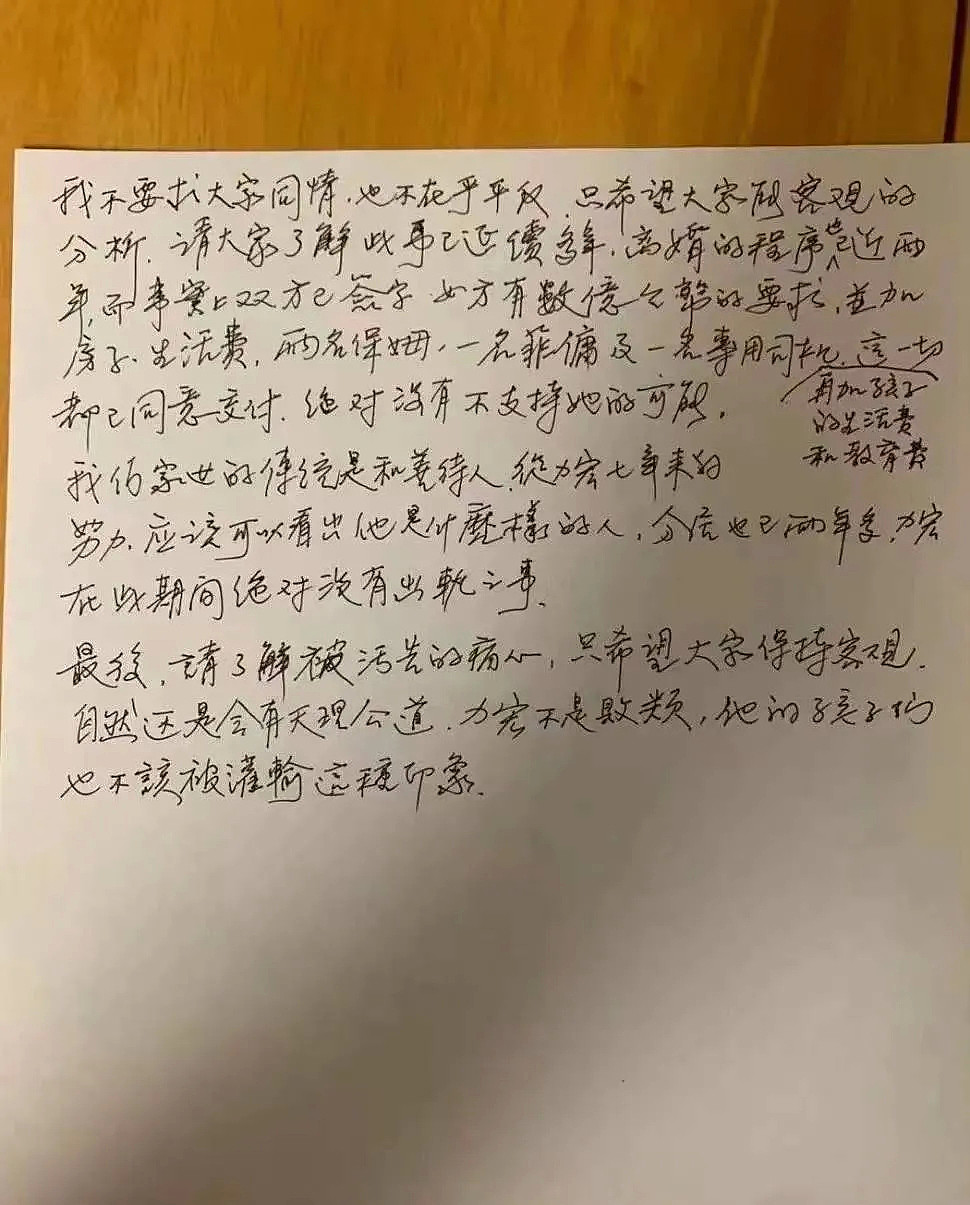 我不要求大家同情.也不在乎平反.只希望大家能客观的
分析.請大家了解此事已延續多年.离婚的程序也已近两
年,而事實上双方已簽字.女方有數億台幣的要求,並加
房子.生活費,两名保姆,一名菲傭及一名專用司机.這一切
再加孩子
的生活费
和教育费
都已同意交付.绝对沒有不支持她的可能.
我们家世的傳统是和善待人.從力宏七年来的
努力.应该可以看出他是什麼樣的人,分居也已两年多.力宏
在此期间绝对没有出軌之事.
最後,請了解被污告的痛心,只希望大家保持客观.
自然还是会有天理公道.力宏不是败类,他的孩子们
也不該被灌輸這種印象.